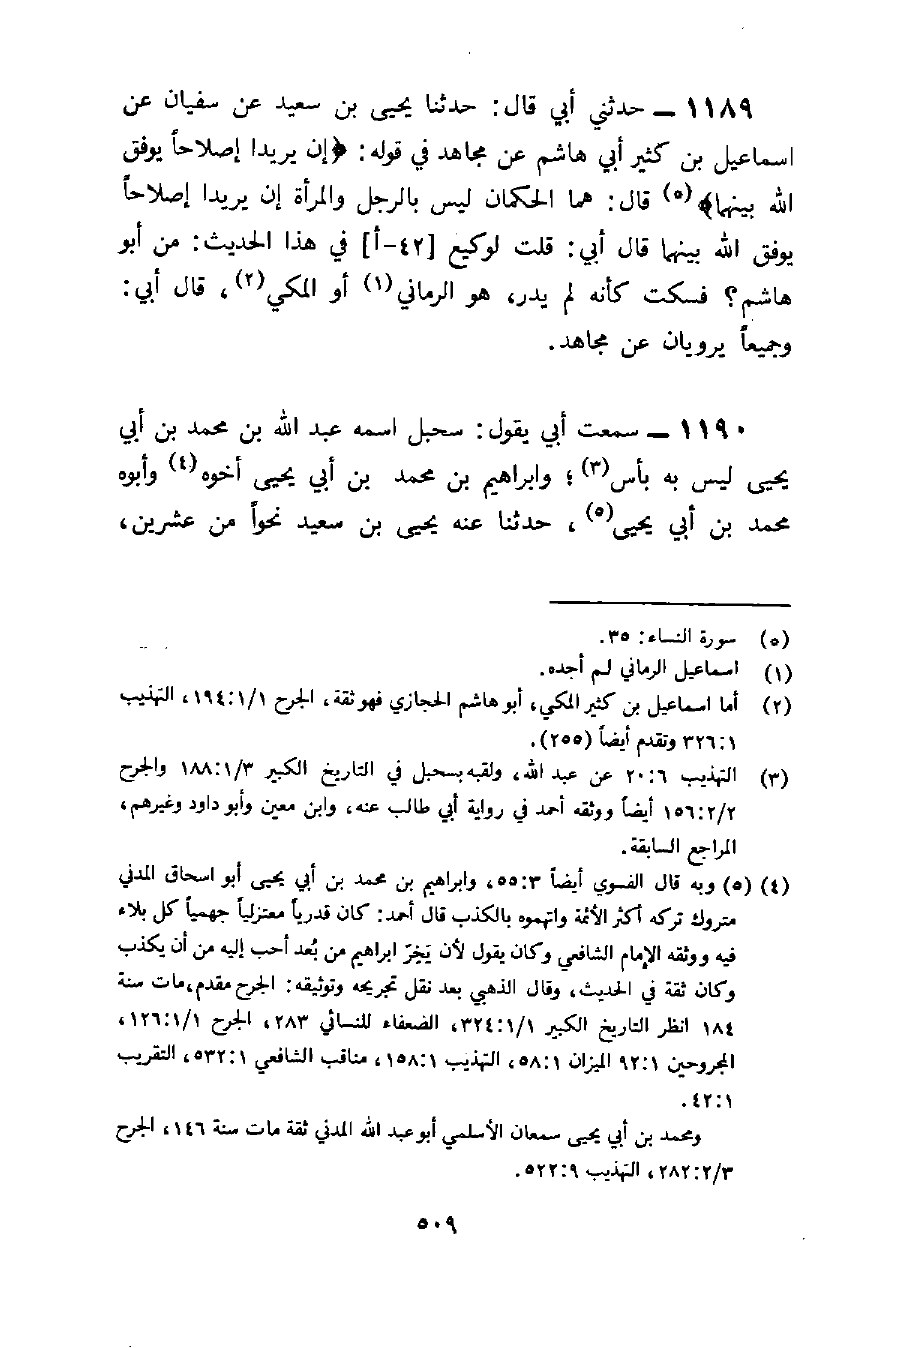 ١١٨٩ — حدثني أبي قال: حدثنا يحيى بن سعيد عن سفيان عن
اسماعيل بن كثير أبي هاشم عن مجاهد في قوله: ﴿إن يريدا إصلاحاً يوفق
الله بينهما﴾(٥) قال: هما الحكمان ليس بالرجل والمرأة إن يريدا إصلاحاً
يوفق الله بينهما قال أبي: قلت لوكيع [٤٢-أ] في هذا الحديث: من أبو
هاشم؟ فسكت كأنه لم يدر، هو الرماني(١) أو المكي(٢)، قال أبي:
وجميعاً يرويان عن مجاهد.
١١٩٠ — سمعت أبي يقول: سحبل اسمه عبد الله بن محمد بن أبي
يحيى ليس به بأس(٣)؛ وابراهيم بن محمد بن أبي يحيى أخوه(٤) وأبوه
محمد بن أبي يحيى(٥)، حدثنا عنه يحيى بن سعيد نحواً من عشرين،
(٥) سورة النساء: ٣٥.
(١) اسماعيل الرماني لم أجده.
(٢) أما اسماعيل بن كثير المكي، أبو هاشم الحجازي فهو ثقة، الجرح ١/١:١٩٤، التهذيب
١:٣٢٦ وتقدم أيضاً (٢٥٥).
(٣) التهذيب ٦:٢٠ عن عبد الله، ولقبه بسحبل في التاريخ الكبير ٣/١:١٨٨ والجرح
٢/٢:١٥٦ أيضاً ووثقه أحمد في رواية أبي طالب عنه، وابن معين وأبو داود وغيرهم،
المراجع السابقة.
(٤) (٥) وبه قال الفسوي أيضاً ٣:٥٥، وابراهيم بن محمد بن أبي يحيى أبو اسحاق المدني
متروك تركه أكثر الأئمة واتهموه بالكذب قال أحمد: كان قدرياً معتزلياً جهمياً كل بلاء
فيه ووثقه الإمام الشافعي وكان يقول لأن يَخِرّ ابراهيم من بُعد أحب إليه من أن يكذب
وكان ثقة في الحديث، وقال الذهبي بعد نقل تجريحه وتوثيقه: الجرح مقدم، مات سنة
١٨٤ انظر التاريخ الكبير ١/١:٣٢٤، الضعفاء للنسائي ٢٨٣، الجرح ١/١:١٢٦،
المجروحين ١:٩٢ الميزان ١:٥٨، التهذيب ١:١٥٨، مناقب الشافعي ١:٥٣٢، التقريب
١:٤٢.
ومحمد بن أبي يحيى سمعان الأسلمي أبو عبد الله المدني ثقة مات سنة ١٤٦، الجرح
٣/٢:٢٨٢، التهذيب ٩:٥٢٢.
٥٠٩